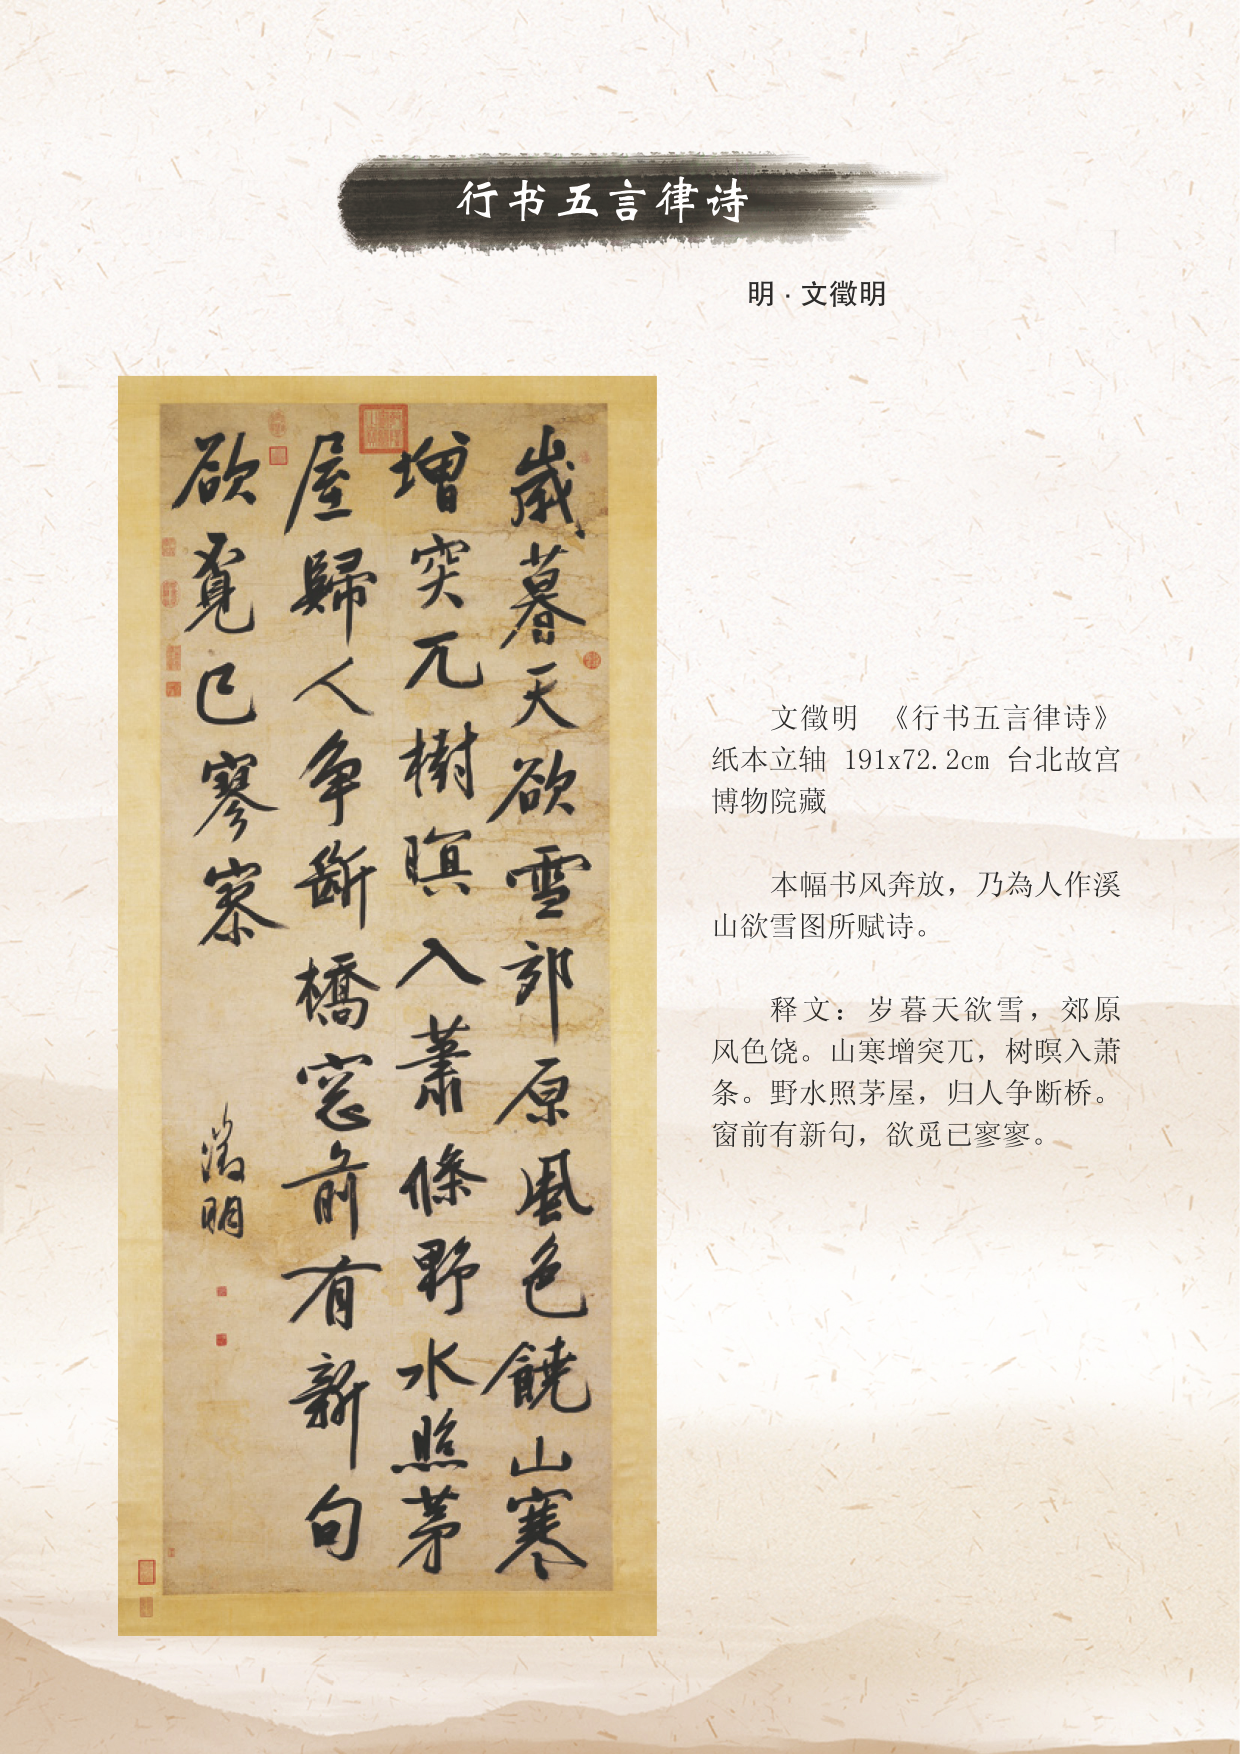 行书五言律诗
明·文徵明
歲暮天欲雪郊原風色饒山寒
增突兀樹暝入蕭條野水照茅
屋歸人争斷橋窓前有新句
欲覓已寥寥
徵明
文徵明 《行书五言律诗》
纸本立轴 191x72.2cm 台北故宫
博物院藏
本幅书风奔放，乃為人作溪
山欲雪图所赋诗。
释文：岁暮天欲雪，郊原
风色饶。山寒增突兀，树暝入萧
条。野水照茅屋，归人争断桥。
窗前有新句，欲觅已寥寥。